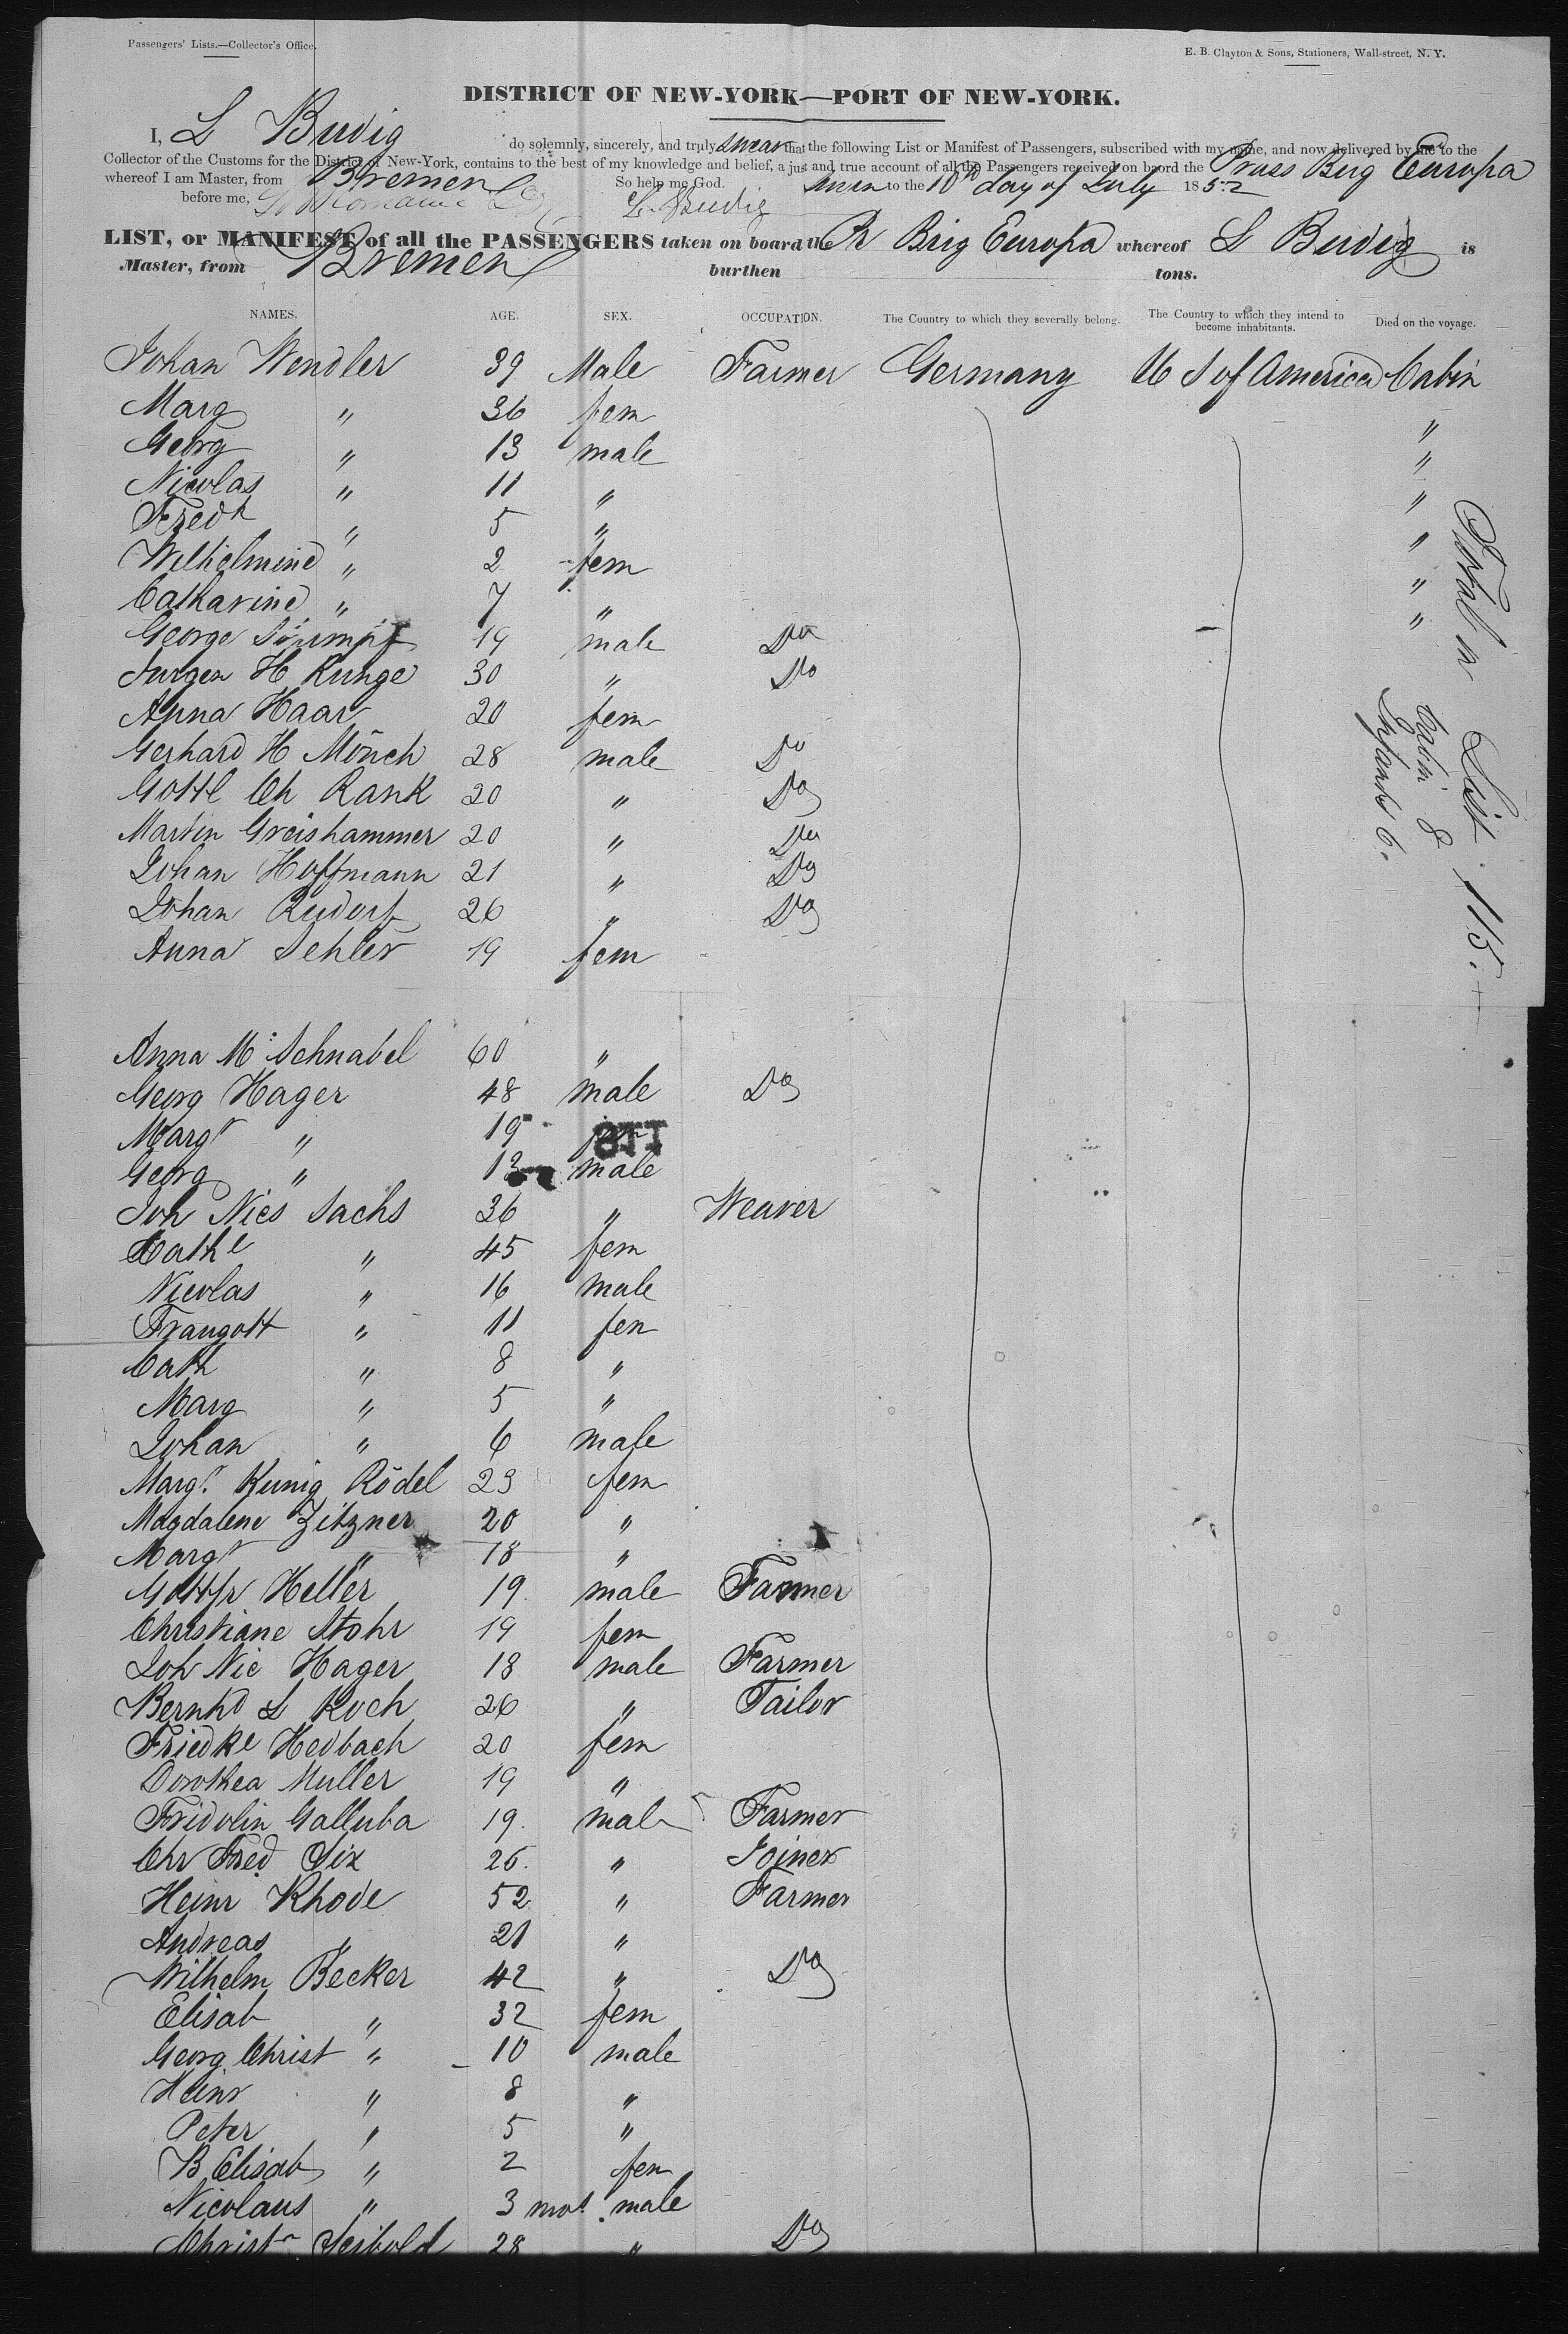 Passengers' Lists.—Collector's Office.
E. B. Clayton & Sons, Stationers, Wall-street, N. Y.
DISTRICT OF NEW-YORK—PORT OF NEW-YORK.
I, L Budig do solemnly, sincerely, and truly swear that the following List or Manifest of Passengers, subscribed with my name, and now delivered by me to the
Collector of the Customs for the District of New-York, contains to the best of my knowledge and belief, a just and true account of all the Passengers received on board the Pruss Brig Europa
whereof I am Master, from Bremen So help me God. Sworn to the 10th day of July 1852
before me, L. Budig
LIST, or MANIFEST of all the PASSENGERS taken on board the Pr Brig Europa whereof L Budig is
Master, from Bremen burthen tons.
NAMES. AGE. SEX. OCCUPATION. The Country to which they severally belong. The Country to which they intend to become inhabitants. Died on the voyage.
Johan Wendler 39 Male Farmer Germany U S of America Cabin
Marg " 36 fem "
Georg " 13 male "
Nicolas " 11 " "
Fredk " 5 " "
Wilhelmine " 2 fem "
Catharine " 7 " "
George 19 male Do
Jurgen H Runge 30 " Do
Anna Haar 20 fem
Gerhard H Mönch 28 male Do
Gottl Ch Rank 20 " Do
Martin Greishammer 20 " Do
Johan Hoffmann 21 " Do
Johan Rudorf 26 " Do
Anna Sehler 19 fem
Total in List 115.
Cabin 8
Infants 6.
Anna M Schnabel 60 "
Georg Hager 48 male Do
Margr " 19 fem
Georg " 13 male
Joh Nics Sachs 36 " Weaver
Cathe " 45 fem
Nicolas " 16 male
Traugott " 11 fem
Cath " 8 "
Marg " 5 "
Johan " 6 male
Margr Kunig Rödel 23 fem
Magdalene Zitzner 20 "
Margr " 18 "
Gottfr Heller 19 male Farmer
Christiane Stohr 19 fem
Joh Nic Hager 18 male Farmer
Bernhd L Koch 26 " Tailor
Friedke Hedbach 20 fem
Dorothea Muller 19 "
Fridolin Galluba 19. male Farmer
Chr Fred Six 26. " Joiner
Heinr Rhode 52 " Farmer
Andreas " 21 "
Wilhelm Becker 42 " Do
Elisab " 32 fem
Georg Christ " 10 male
Heinr " 8 "
Peter " 5 "
B Elisab " 2 fem
Nicolaus " 3 mos. male
Christn Seibold 28 " Do